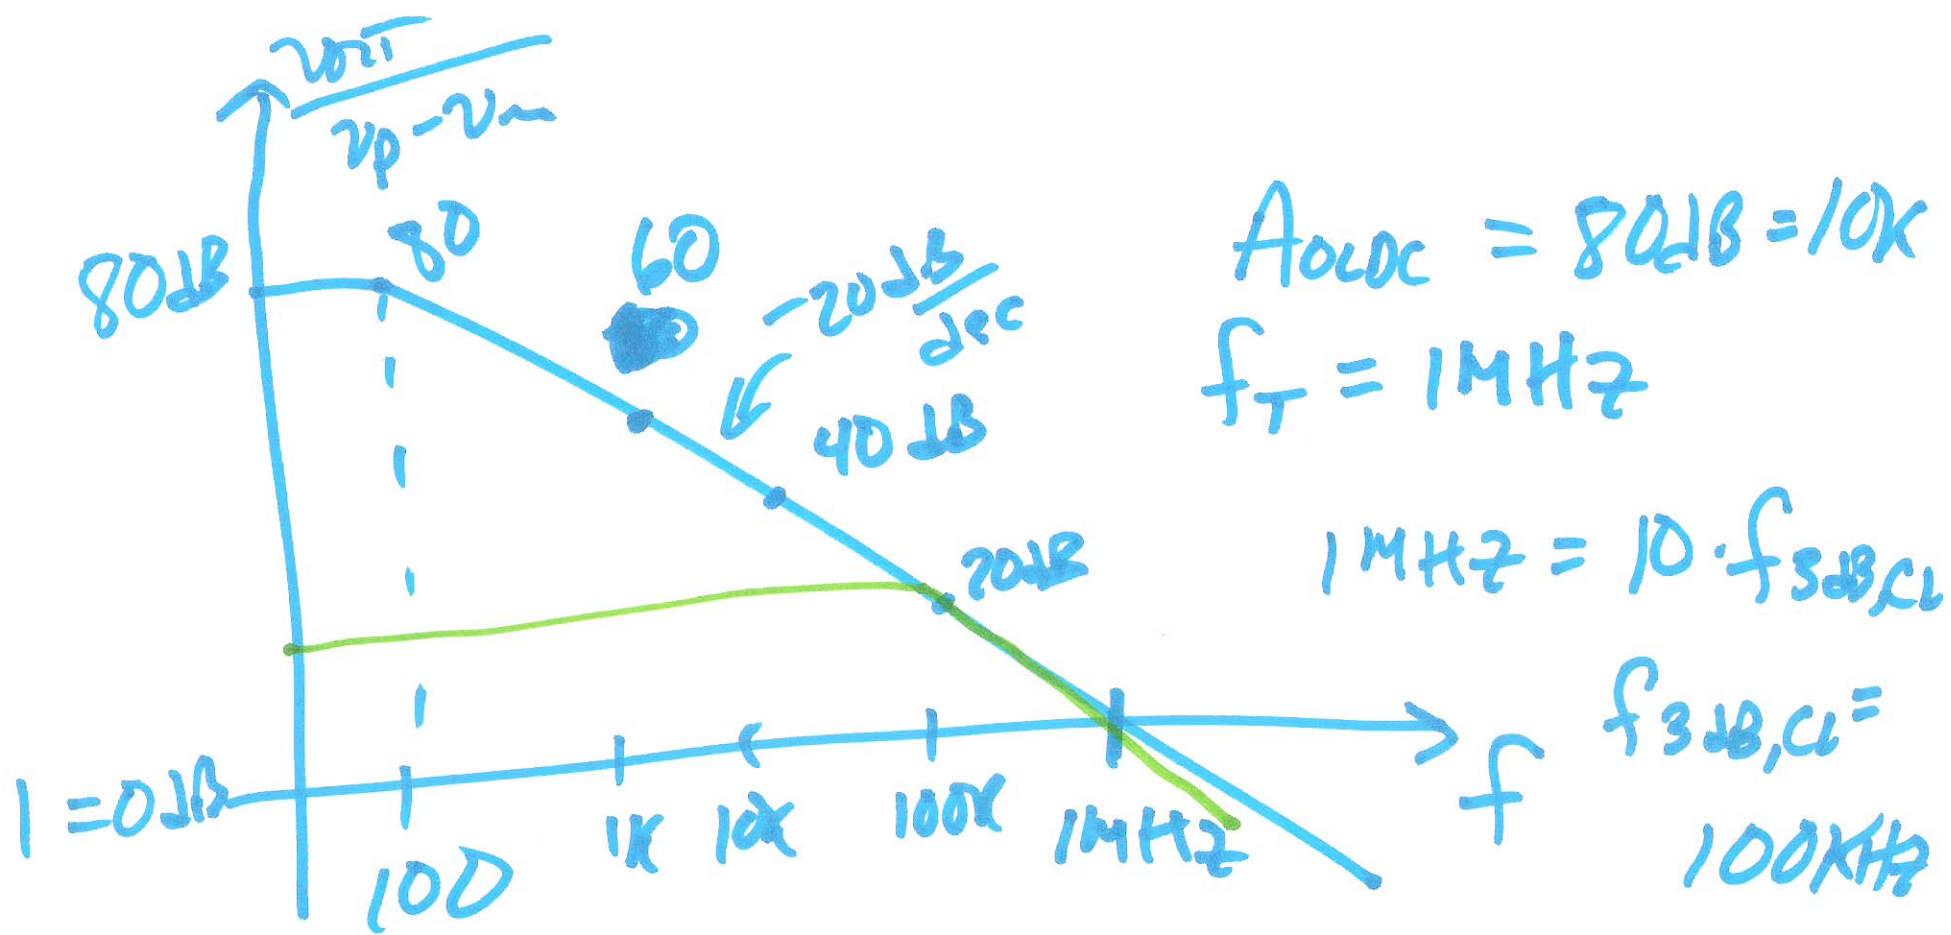 vout
vp-vm
80dB
80
60
-20dB/dec
40dB
20dB
1=0dB
100
1K
10K
100K
1MHz
f
AOLDC = 80dB = 10K
fT = 1MHz
1MHz = 10·f3dB,CL
f3dB,CL =
100KHz